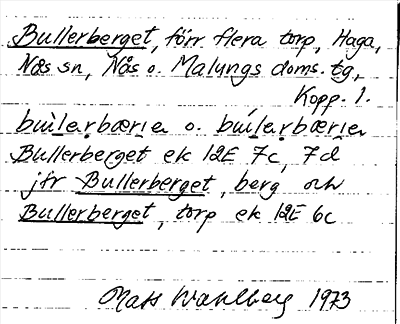 Bullerberget, förr flera torp, Haga,
Nås sn, Nås o. Malungs doms. tg,
Kopp. l.
Bullerberget ek 12E 7c, 7d
jfr Bullerberget, berg och
Bullerberget, torp ek 12E 6c
Mats Wahlberg 1973